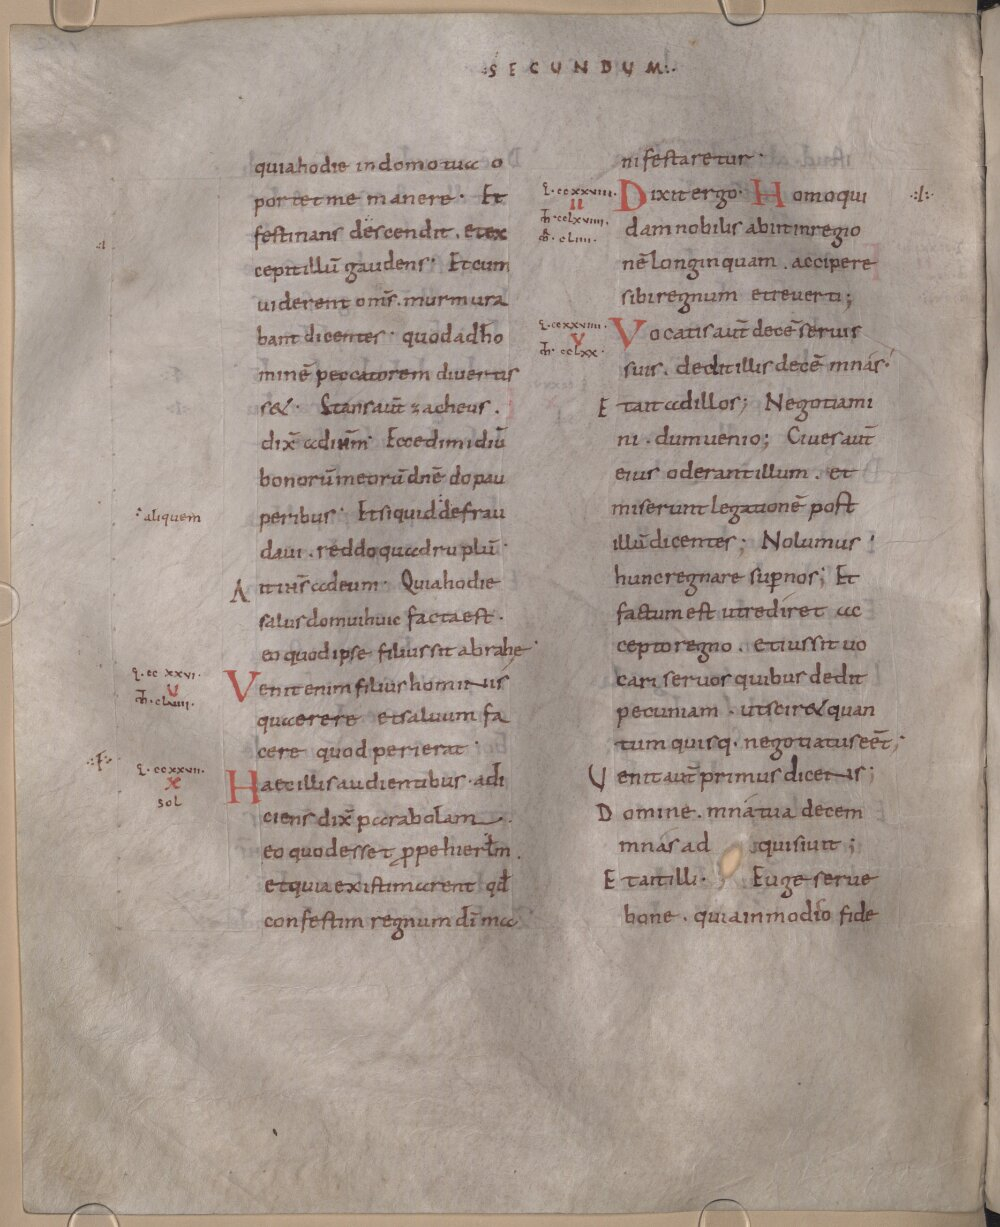 ·:SECUNDUM:·
quia hodie in domo tua o
portet me manere· Et
festinans descendit. et ex
cepit illū gaudens· Et cum
uiderent om̄s. murmura
bant dicentes· quod ad ho
minē peccatorem diuertis
s&· Stans aut̄ zacheus.
dix̄ ad ihm̄· Ecce dimidiū
bonorū meorū dn̄e do pau
peribus· Et si quid defrau
·aliquem
daui. reddo quadruplū·
Ait ih̄s ad eum· Quia hodie
salus domui huic facta est·
eo quod ipse filius sit abrahe·
L·ccxxvi·
V
Venit enim filius hominis
quaerere et saluum fa
cere quod perierat·
L·ccxxvii·
X
SOL
Haec illis audientibus· adi
ciens dix̄ parabolam.
eo quod esset ꝓpe hierlm̄.
et quia existimarent qd̄
confestim regnum dī ma
nifestaretur·
L·ccxxviii·
II
m̄·cclxviiii·
Dixit ergo· Homo qui
dam nobilis abiit in regio
nē longinquam. accipere
sibi regnum et reuerti;
L·ccxxviiii·
V
m̄·cclxx·
Vocatis aut̄ decē seruis
suis. dedit illis decē mnas·
Et ait ad illos; Negotiami
ni. dum uenio; Ciues aut̄
eius oderant illum. et
miserunt legationē post
illū dicentes; Nolumus
hunc regnare sup̄ nos; Et
factum est ut rediret ac
cepto regno. et iussit uo
cari seruos quibus dedit
pecuniam. ut scir& quan
tum quisq· negotiatus eēt;
Venit aut̄ primus dicens;
Domine. mna tua decem
mnas adquisiuit;
Et ait illi· Euge serue
bone. quia in modico fide